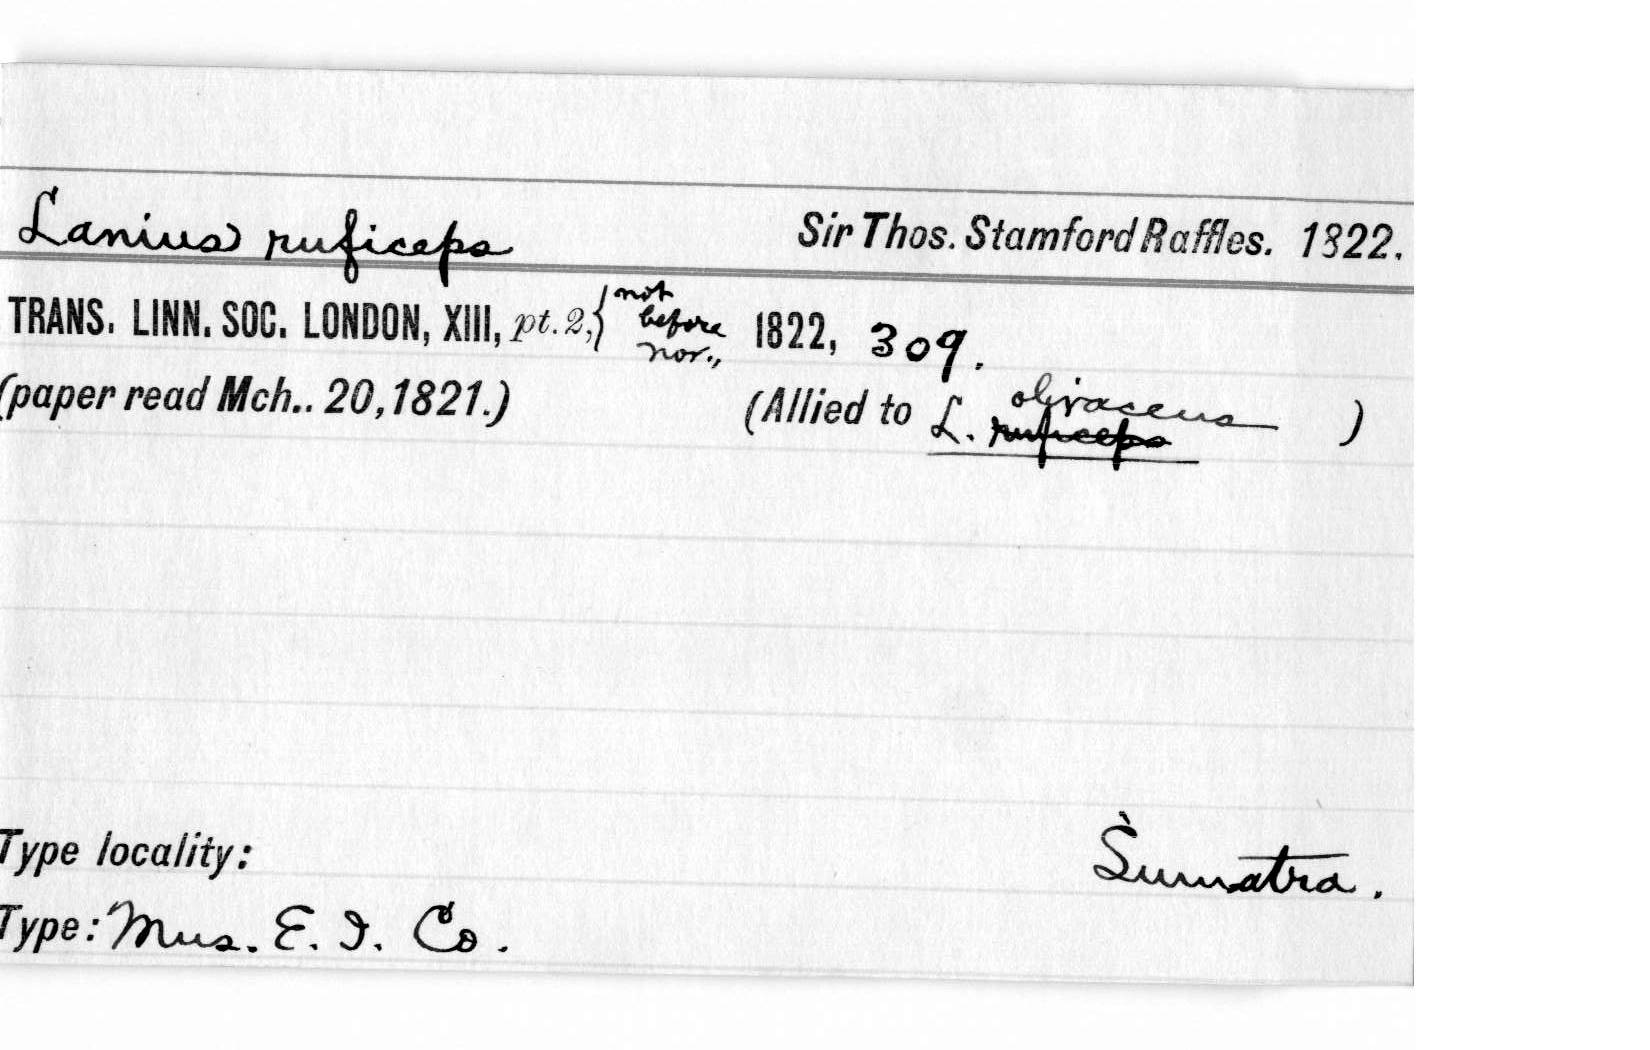 Lanius ruficeps Sir Thos. Stamford Raffles. 1822.
TRANS. LINN. SOC. LONDON, XIII, pt. 2, { not before Nov., 1822, 309.
(paper read Mch.. 20, 1821.) (Allied to L. ruficeps olivaceus )
Type locality: Sumatra.
Type: Mus. E. I. Co.